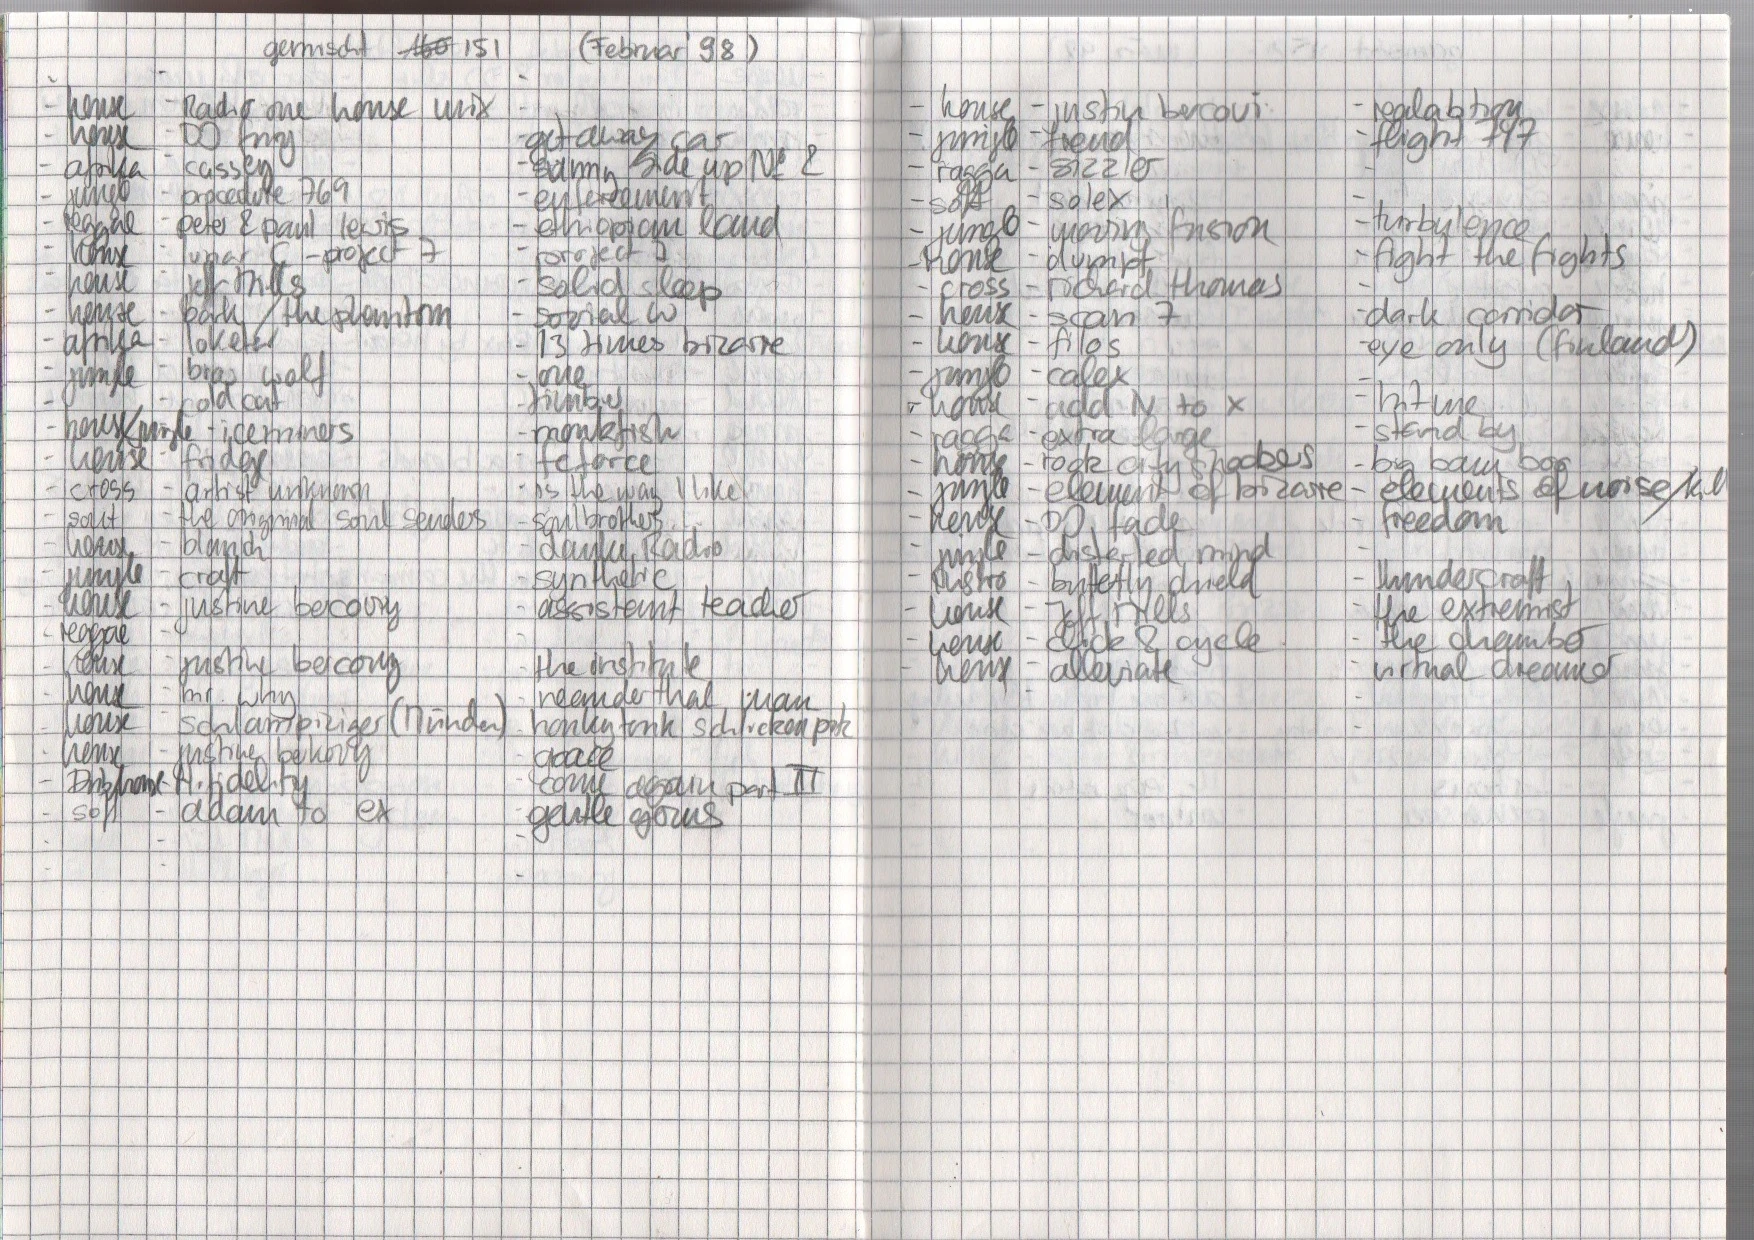 gemischt 151 (Februar '98)
- house - Radio one house mix
- house - DJ - getaway car
- afrika - cassey - sunny side up No 2
- jungle - procedure 769 - enforcement
- reggae - peter & paul lewis - ethiopian land
- house - lunar C - project 7 - project
- house - jeff mills - solid sleep
- house - / the phantom - sozial
- afrika - - 13 times bizarre
- jungle - wolf - one
- - cold cut - timber
- house/jungle - iceminers - monkfish
- house - fridge - teforce
- cross - artist unknown - is the way I like
- soul - the original soul senders - soulbrothers
- house - - Radio
- jungle - craft - synthetic
- house - justine bercovy - assistent teacher
- reggae -
- house - justine bercovy - the institute
- house - mr. why - neanderthal man
- house - schlampiziger - honkytonk
- house - justine bekovy - grace
- house - H. fidelity - come again part II
- soft - adam to ex - gentle
- house - justin bercovi - regulabtion
- jungle - trend - flight 747
- ragga - sizzler -
- soft - solex
- jungle - moving fusion - turbulence
- house - - fight the fights
- cross - richard thomas -
- house - scan 7 - dark corridor
- house - filos - eye only (finland)
- jungle - calex -
- house - add N to x - hit me
- ragga - extra large - stand by
- house - rock city shockers - big bam boo
- jungle - element of bizarre - elements of noise/kill
- house - DJ. fade - freedom
- jungle - distorted mind -
- - butterfly child - thundercraft
- house - jeff mills - the extremist
- house - click & cycle - the chamber
- house - alleviate - virtual dreamer